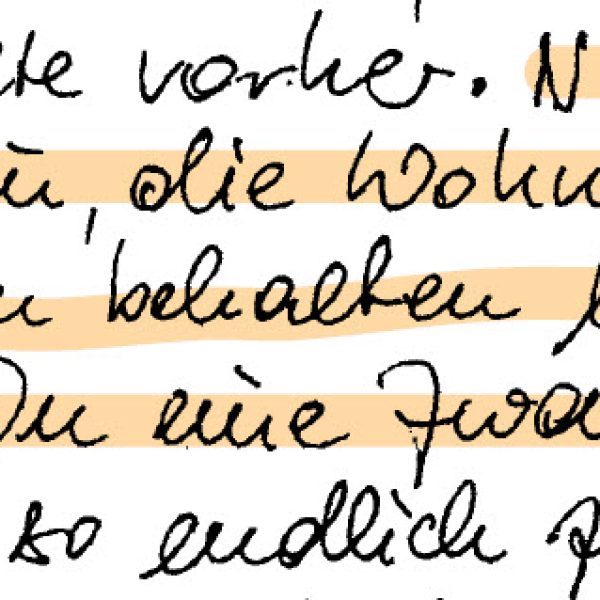 te vorher. N
, die Wohn
n behalten
Du eine Zwa
so endlich